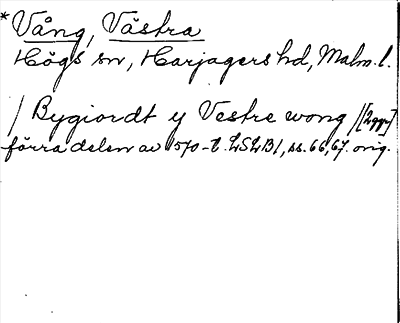 *Vång, Västra
Högs sn, Harjagers hd, Malm. l.
/ Bygiordt y Vestre wong /[2ggr]
förra delen av 1570-t. LSLB1, ss. 66, 67. orig.